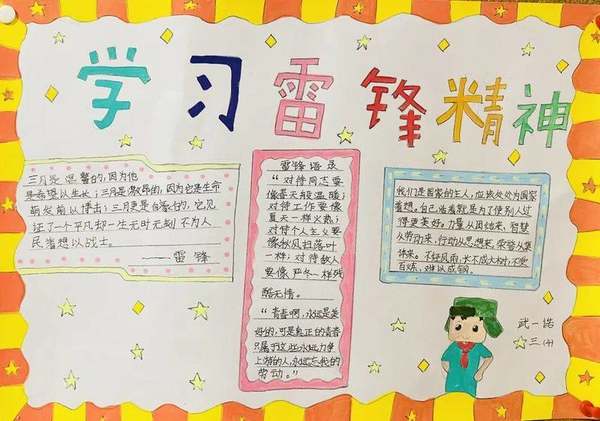 学习雷锋精神
三月是温馨的,因为他
是希望从生长;三月是激昂的,因为也是生命
萌发前从搏击;三月更是自豪的,它见
证了一个平凡却一生无时无刻不为人
民着想从战士。
——雷锋
雷锋语录
“对待同志要
像春天般温暖;
对待工作要像
夏天一样火热;
对待个人主义要
像秋风扫落叶
一样;对待敌人
要像严冬一样残
酷无情。
“青春啊,永远是美
好的,可是真正的青春
只属于这些永远力争
上游的人,永远忘我的
劳动。”
我们是国家的主人,应该处处为国家
着想。自己活着就是为了使别人过
得更美好。力量从团结来,智慧
从劳动来,行动从思想来,荣誉从集
体来。不经风雨,长不成大树;不受
百炼,难以成钢。
武一诺
三(十)